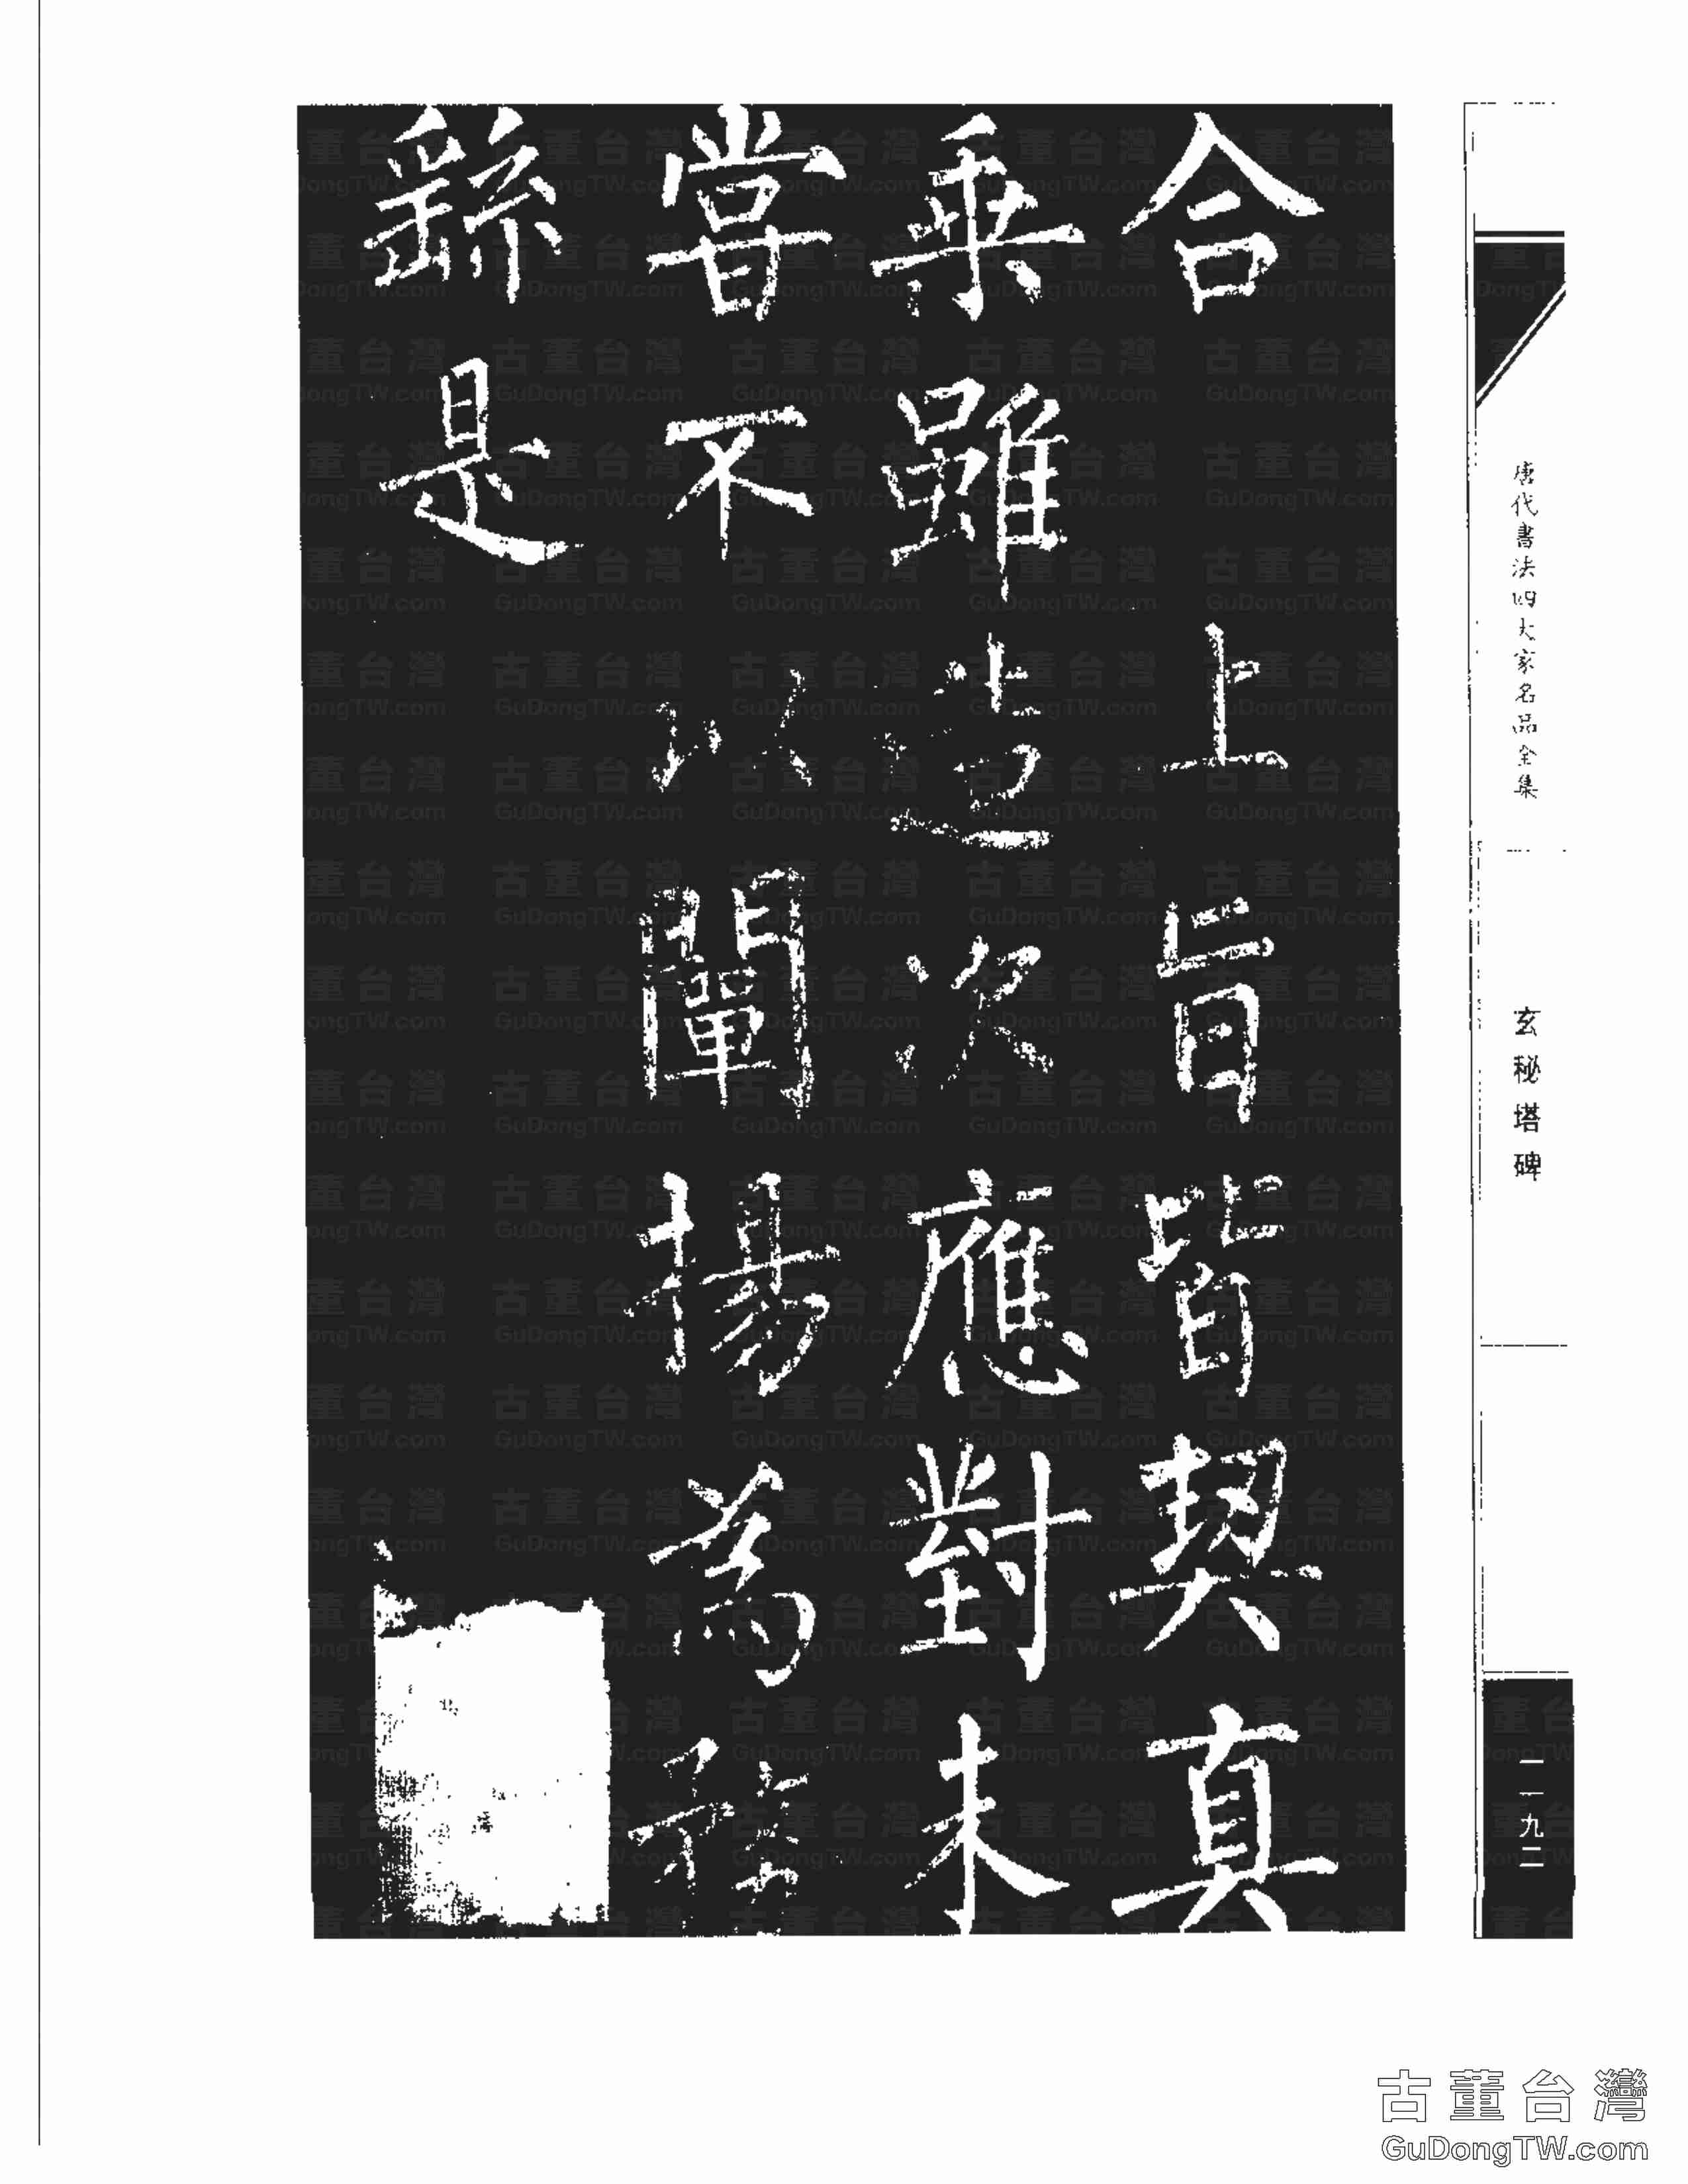 唐代書法四大家名品全集
玄秘塔碑
一一九二
合上旨皆契真
乘雖造次應對未
嘗不以闡揚為務
繇是
古董台灣
GuDongTW.com